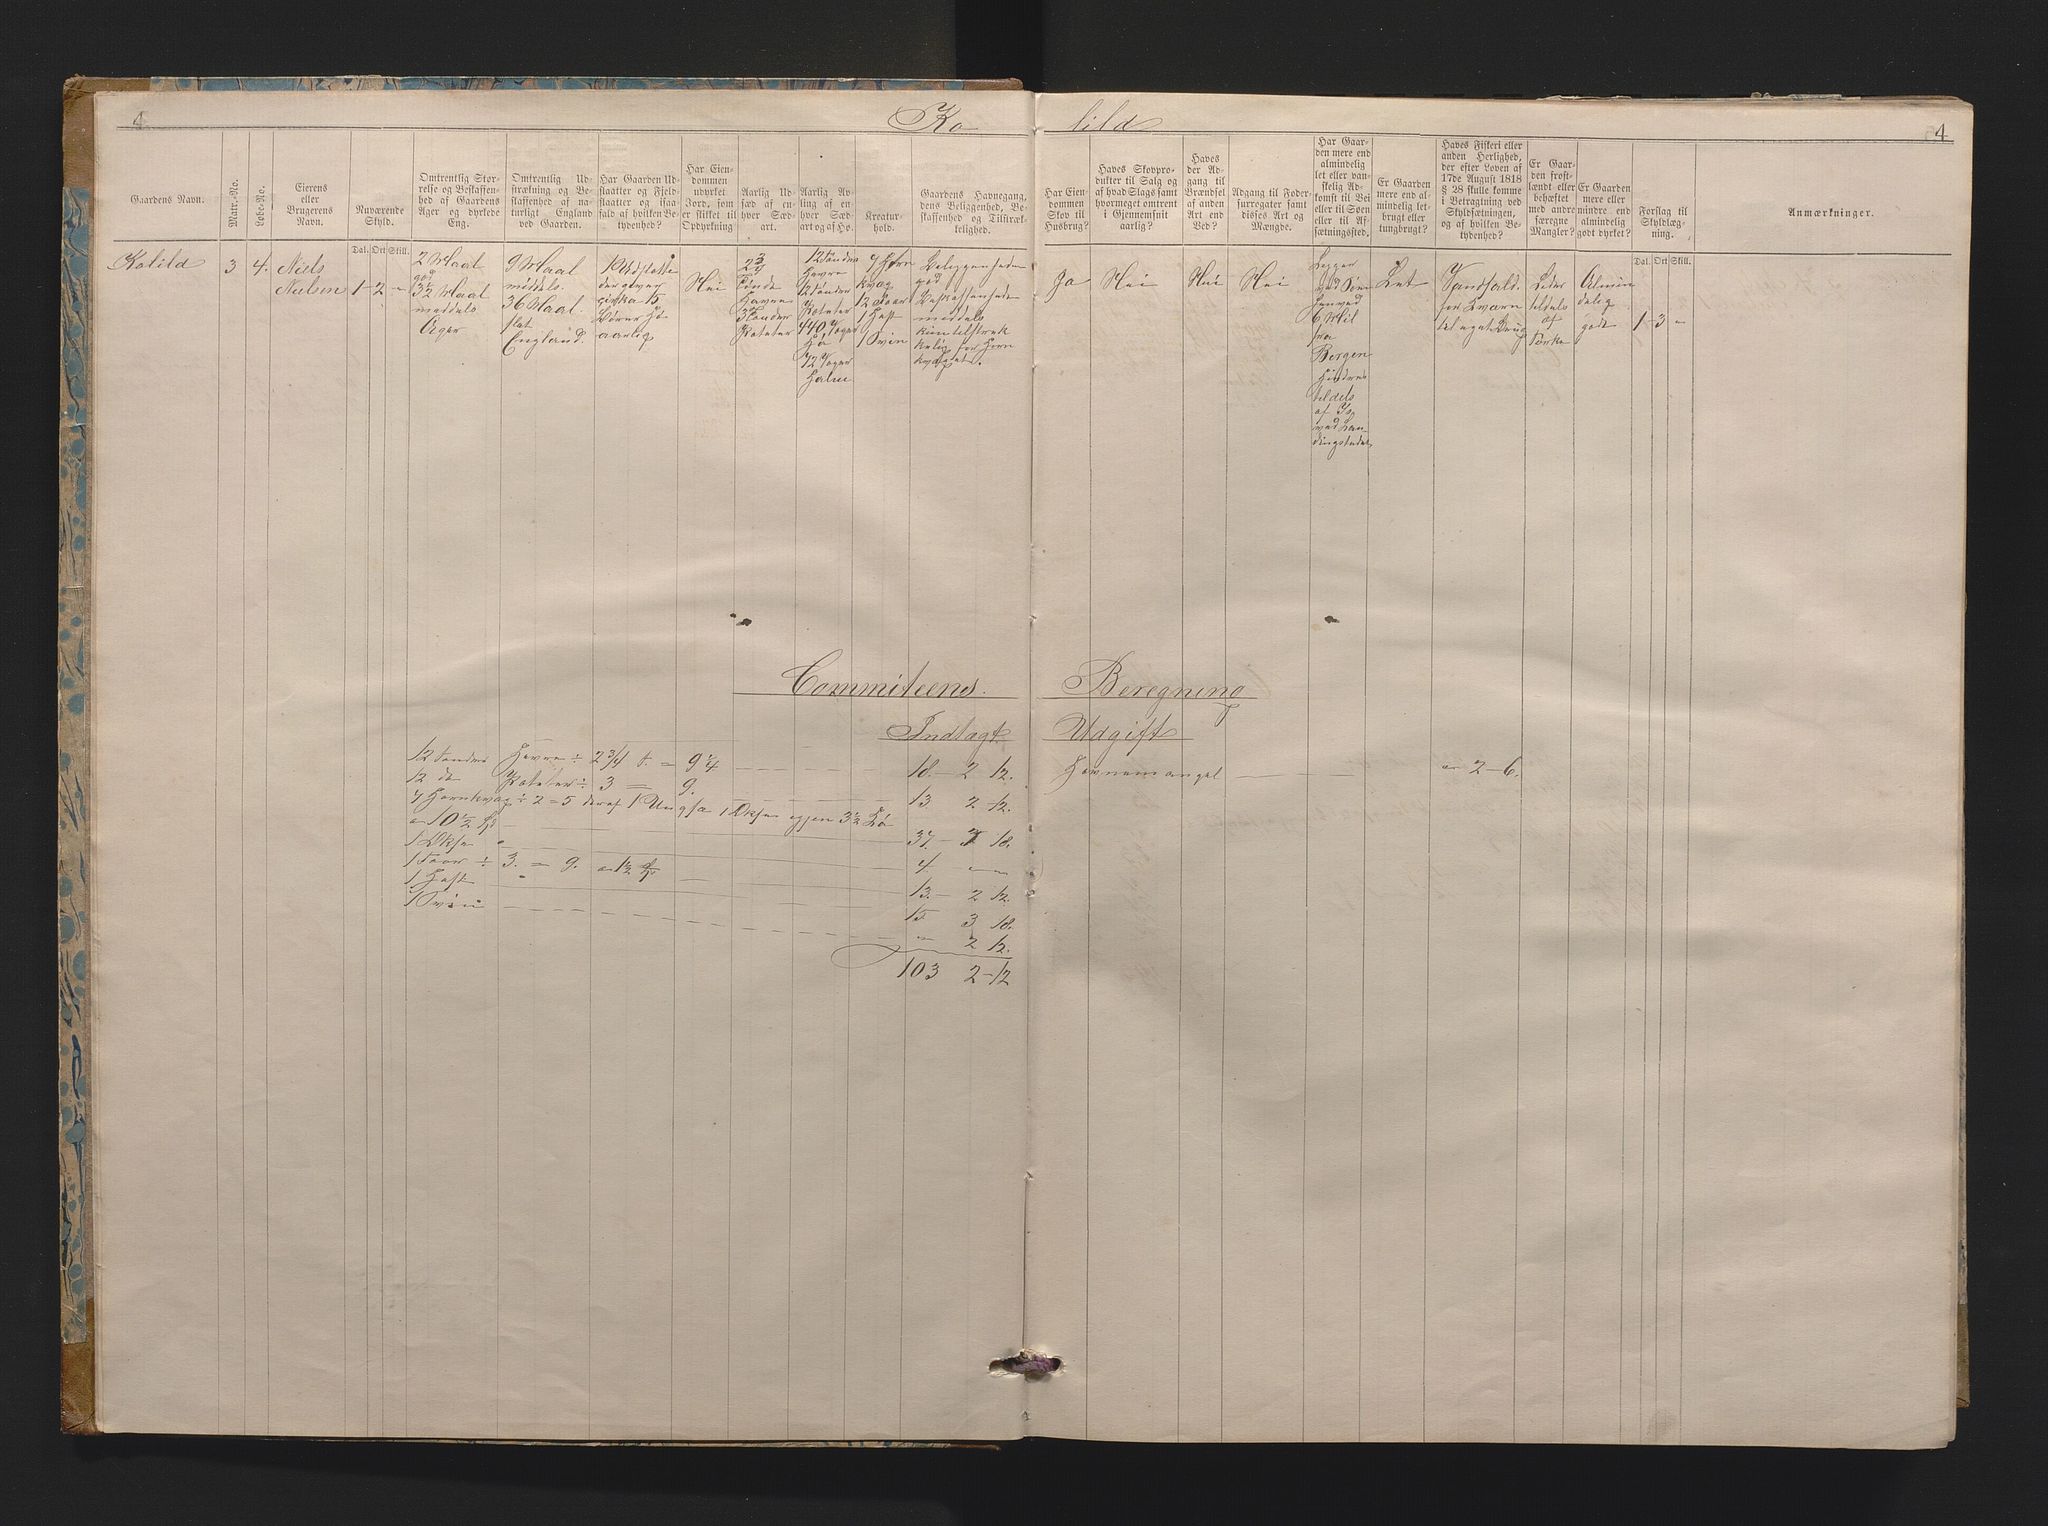 4
Ko
lild
4
Gaardens Navn.
Matr.-No.
Løbe-No.
Eierens
eller
Brugerens
Navn.
Nuværende
Skyld.
Dal. Ort Skill.
Omtrentlig Stør-
relse og Beskaffen-
hed af Gaardens
Ager og dyrkede
Eng.
Omtrentlig Ud-
strækning og Be-
skaffenhed af na-
turligt England
ved Gaarden.
Har Gaarden Ud-
slaatter og Fjeld-
slaatter og isaa-
fald af hvilken Be-
tydenhed?
Har Eien-
dommen
udyrket
Jord, som
er skikket til
Opdyrkning
Aarlig Ud-
sæd af en-
hver Sæd-
art.
Aarlig Av-
ling af en-
hver Sæd-
art og af Hø.
Kreatur-
hold.
Gaardens Havnegang,
dens Beliggenhed, Be-
skaffenhed og Tilstræk-
kelighed.
Har Eien-
dommen
Skov til
Husbrug?
Haves Skovpro-
dukter til Salg og
af hvad Slags samt
hvormeget omtrent
i Gjennemsnit
aarlig?
Haves
der Ad-
gang til
Brændsel
af anden
Art end
Ved?
Adgang til Foder-
surrogater samt
disses Art og
Mængde.
Har Gaar-
den mere end
almindelig
let eller van-
skelig Ad-
komst til Bei
eller til Søen
eller til Af-
sætningssted.
Er Gaarden
mere end al-
mindelig let-
brugt eller
tungbrugt?
Haves Fiskeri eller
anden Herlighed,
der efter Loven af
17de August 1818
§ 28 skulle komme
i Betragtning ved
Skyldsætningen,
og af hvilken Be-
tydenhed?
Er Gaar-
den frost-
lændt eller
behæftet
med andre
særegne
Mangler?
Er Gaarden
mere eller
mindre end
almindelig
godt dyrket?
Forslag til
Skyldlæg-
ning.
Dal. Ort Skill.
Anmærkninger.
Kolild
3
4.
Niels
Nielsen
1-2-"
2 Maal
god
3½ Maal
meddels
Ager
9 Maal
middels.
36 Maal.
slet
England.
1 Udslatte
der giver
cirka 15
Bører Hø
aarlig
Nei
2¾
Tønde
Havre
3 Tønder
Poteter
12 Tønder
Havre
12 Tønder
Poteter
440 Voger
Hø
72 Voger
Halm
7 Horn
kvæg
12 Faar
1 Hest
1 Svin
Beliggenheden
god
Beskaffenheden
meddels
kun tilstræk
kelig for Horn
kvæget.
Ja
Nei
Nei
Nei
Ligger
ved Søen
henved
6 Mil
fra
Bergen
Hindres
tildels
af Is
ved Lan
dingstedet
Let
Vandfald.
for Kværn
til eget Brug
Lider
tildels
af
Tørke
Almin
delig
godt
1-3-"
Commiteens.
Beregning
Indtægt
Udgift
12 Tønder Havre ÷ 2 3/4 t. = 9 1/4 18.-2 12.
Havnemangel a 2-6.
12 do Poteter ÷ 3 = 9. 13 2-12.
7 Hornkvæg ÷ 2 = 5 deraf 1 Ungfæ 1 Okse igjen 3½ Kø
a 10½ Spd 37.-3 18.
1 Okse 4. " "
1 Faar ÷ 3. = 9. a 1½ 13.-2 12.
1 Hest 15 3 18.
1 Svin " 2 12.
103 2-12